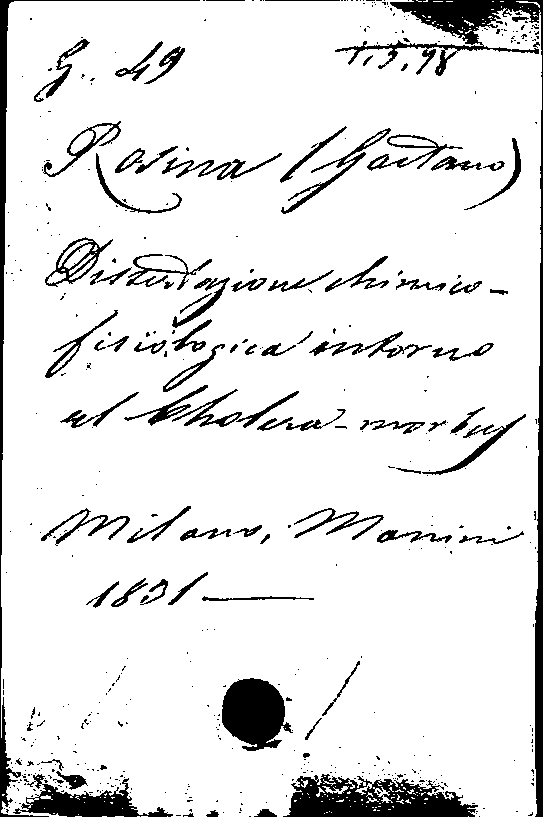 G. 49 1.3.98
Rosina (Gaetano)
Dissertazione chimico-
fisiologica intorno
al Cholera-morbus
Milano, Manini
1831